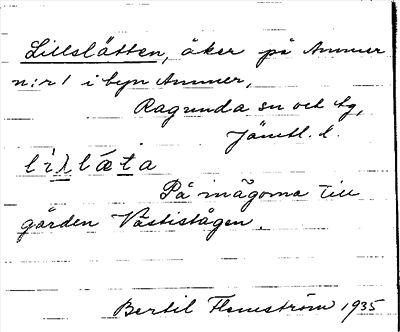 Lillslätten, åker på Ammer
n:r 1 i byn Ammer,
Ragunda sn och tg,
Jämtl. l.
lìλlǽta
På inägorna till
gården Västistågen.
Bertil Flemström 1935